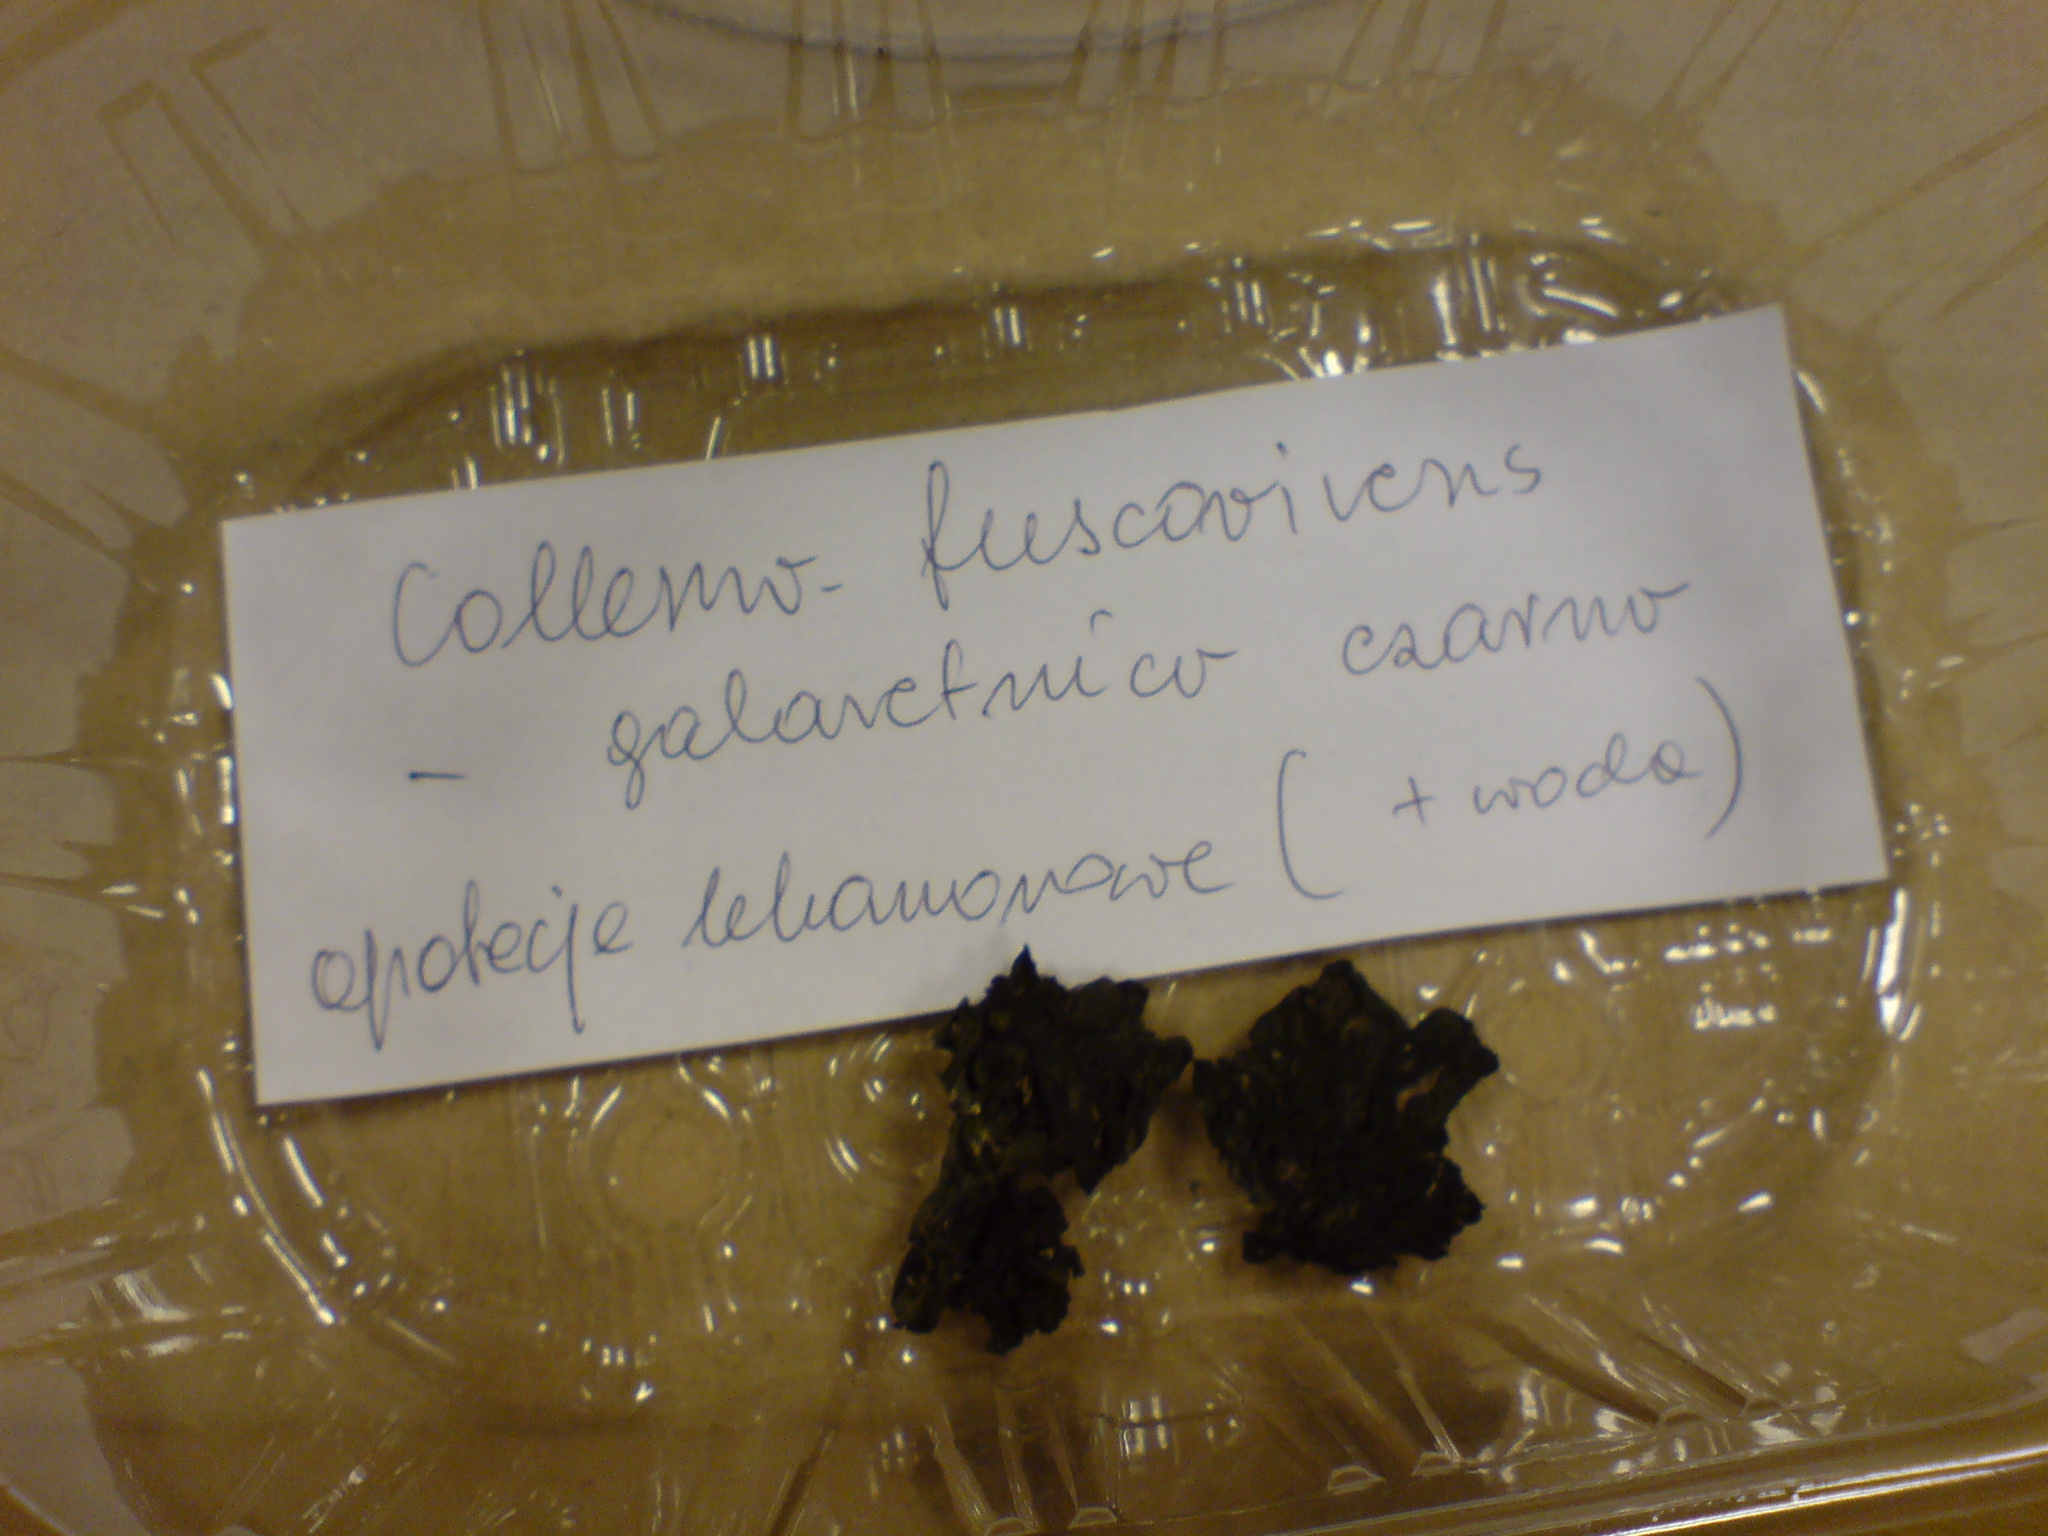 Collema fuscovirens
- galaretnica czarna
apotecja lekanorowe ( + woda)